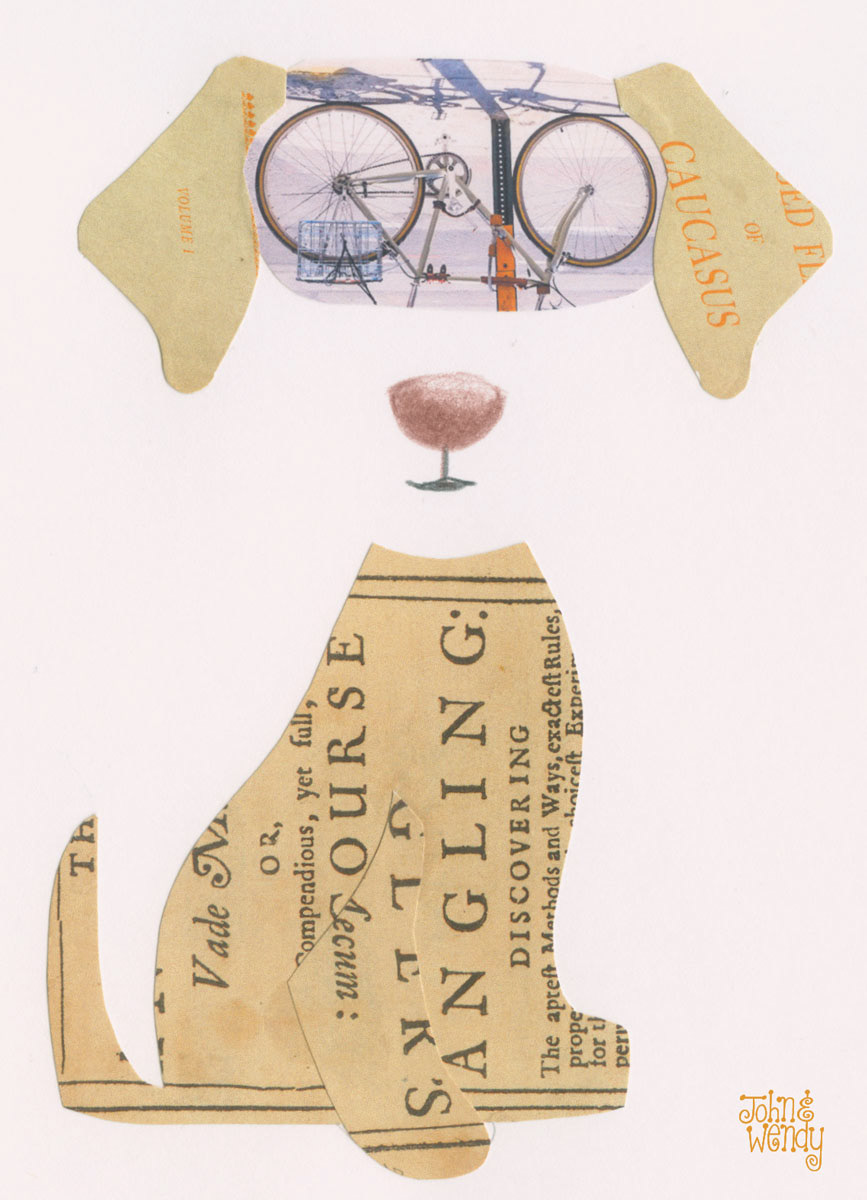 VOLUME I
SED FL
OF
CAUCASUS
TH
Vade
OR,
Compendious, yet full,
COURSE
ANGLING:
DISCOVERING
The apteſt Methods and Ways, exacteſt Rules,
prope choiceſt Experim
for th
peri
ecum:
John &
Wendy